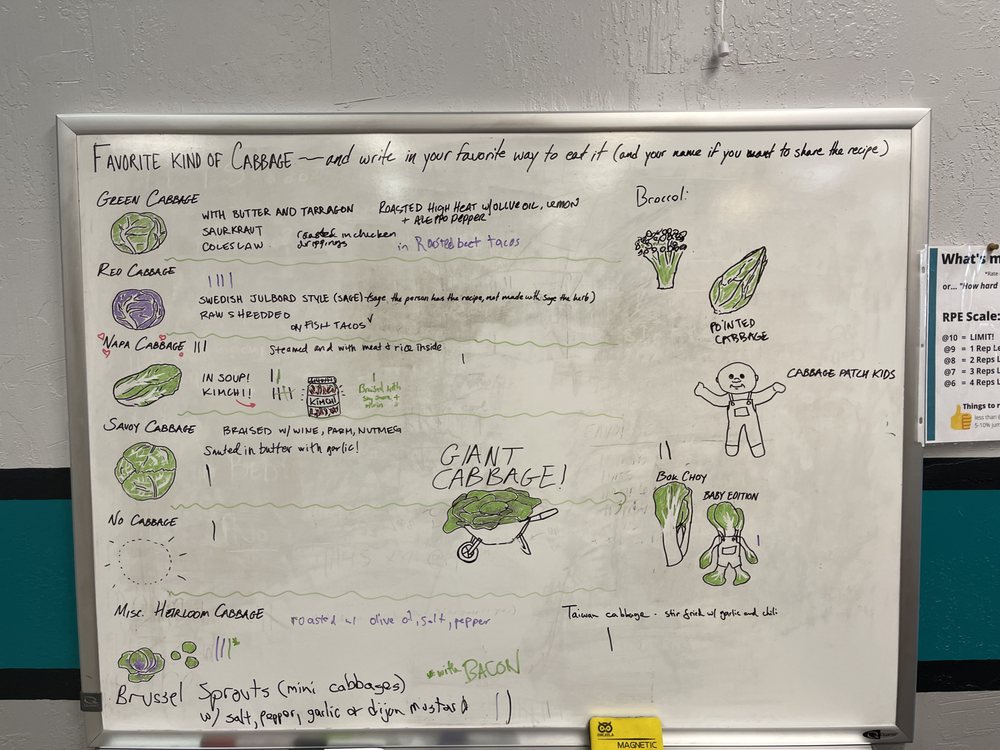 FAVORITE KIND OF CABBAGE — and write in your favorite way to eat it (and your name if you want to share the recipe)
GREEN CABBAGE
WITH BUTTER AND TARRAGON
SAURKRAUT
COLESLAW
ROASTED HIGH HEAT W/OLIVE OIL, LEMON
+ ALEPPO PEPPER
roasted in chicken
drippings
in Roasted beet tacos
RED CABBAGE
SWEDISH JULBORD STYLE (SAGE) (sage, the person has the recipe, not made with sage the herb)
RAW SHREDDED
ON FISH TACOS
NAPA CABBAGE
Steamed and with meat & rice inside
IN SOUP!
KIMCHI!
KIMCHI
Braised with
soy sauce +
SAVOY CABBAGE
BRAISED W/ WINE, PARM, NUTMEG
Sauted in butter with garlic!
GIANT
CABBAGE!
NO CABBAGE
MISC. HEIRLOOM CABBAGE
roasted w/ olive oil, salt, pepper
*with BACON
Brussel Sprouts (mini cabbages)
w/ salt, pepper, garlic or dijon mustard
Broccoli
POINTED
CABBAGE
CABBAGE PATCH KIDS
BOK CHOY
BABY EDITION
Taiwan cabbage - stir fried w/ garlic and chili
What's m
*Rate
or... "How hard
RPE Scale:
@10 = LIMIT!
@9 = 1 Rep Le
@8 = 2 Reps L
@7 = 3 Reps L
@6 = 4 Reps L
Things to r
less than
5-10% jum
MAGNETIC